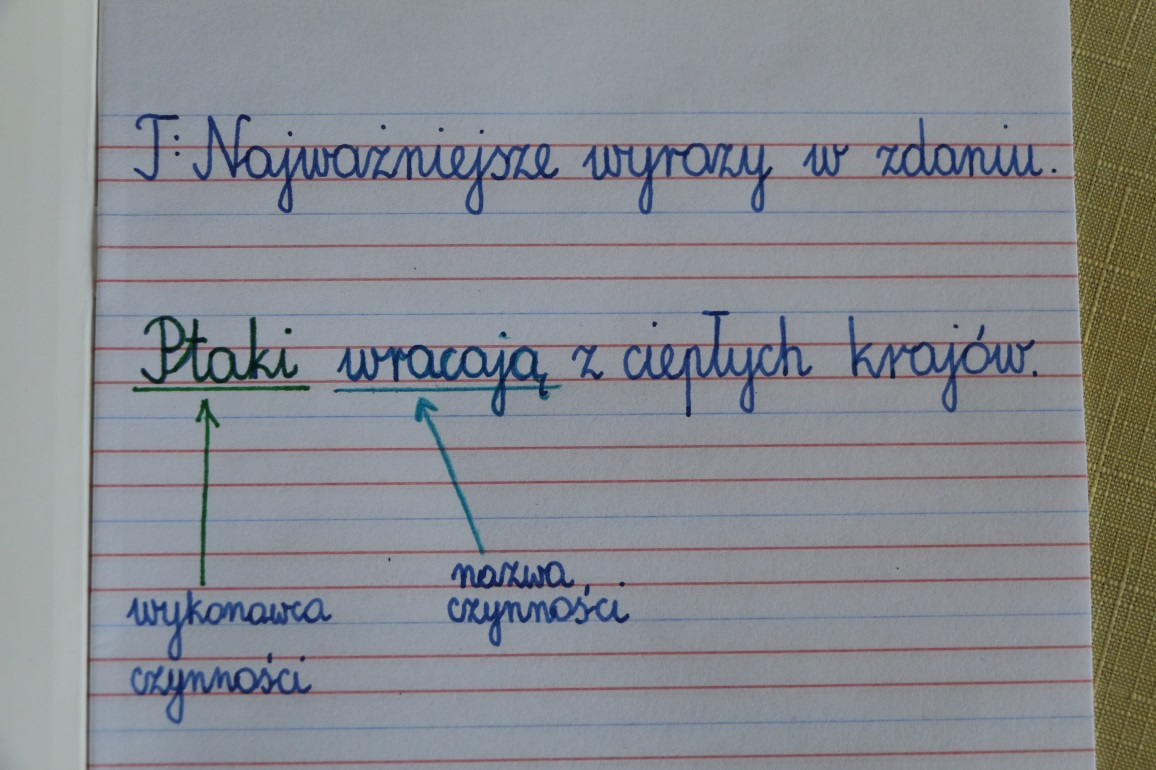 T: Najważniejsze wyrazy w zdaniu.
Ptaki wracają z ciepłych krajów.
wykonawca
czynności
nazwa
czynności